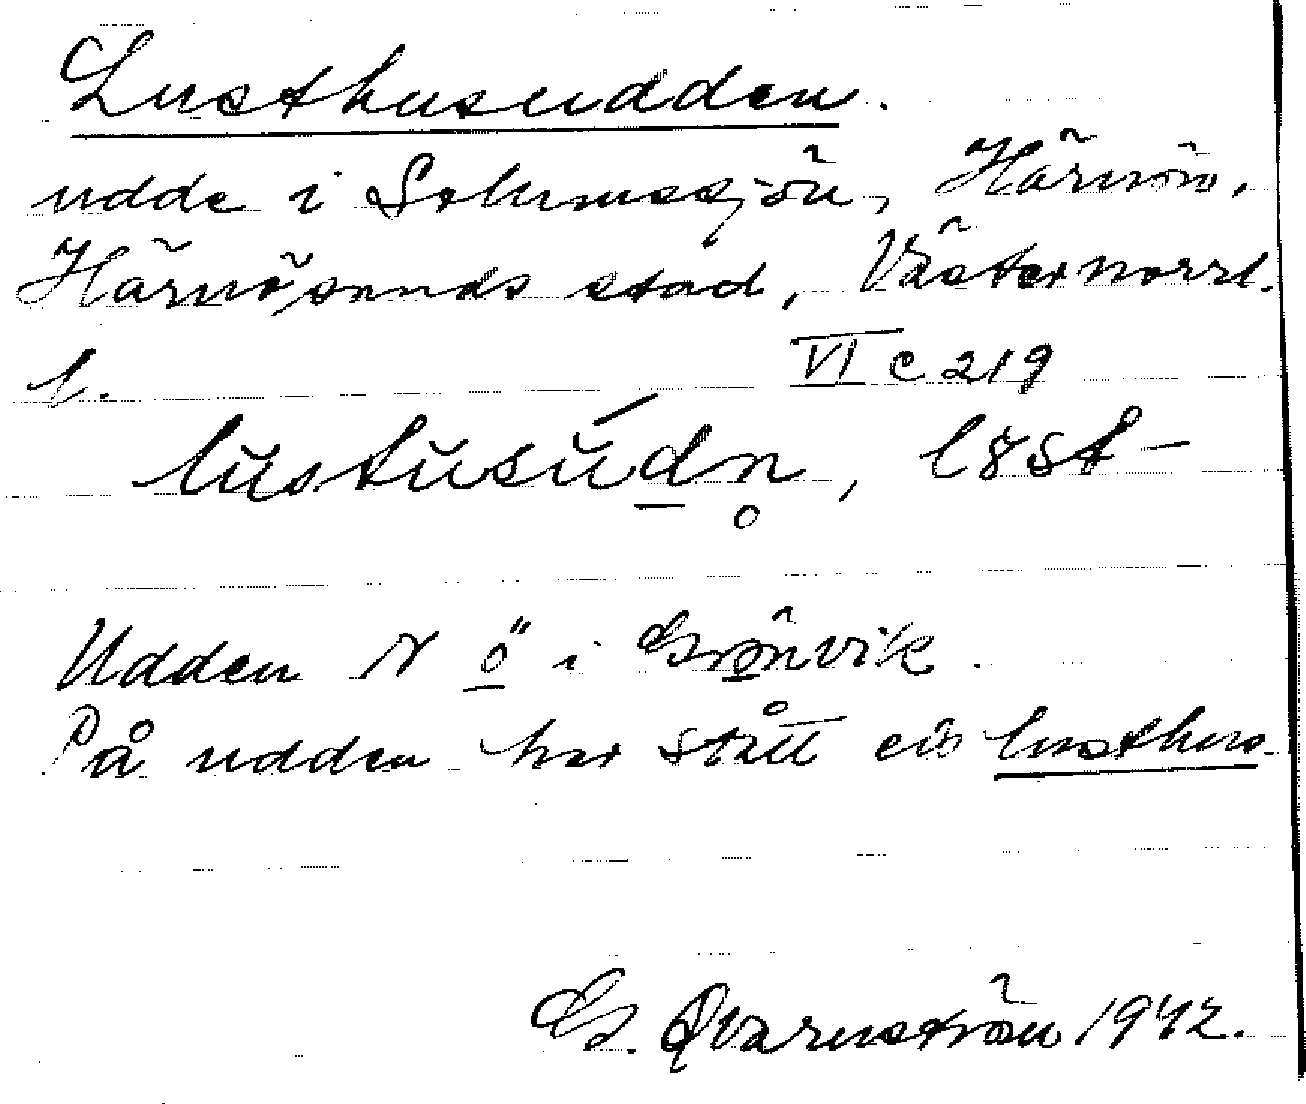 Lusthusudden.
udde i Solumssjön, Härnön,
Härnösands stad, Västernorrl.
l.
VI c 219
lŭstŭsŭ́dn̥, l8st-
Udden N ö i Grönvik.
På udden har stått ett lusthus.
G. Qvarnström 1942.